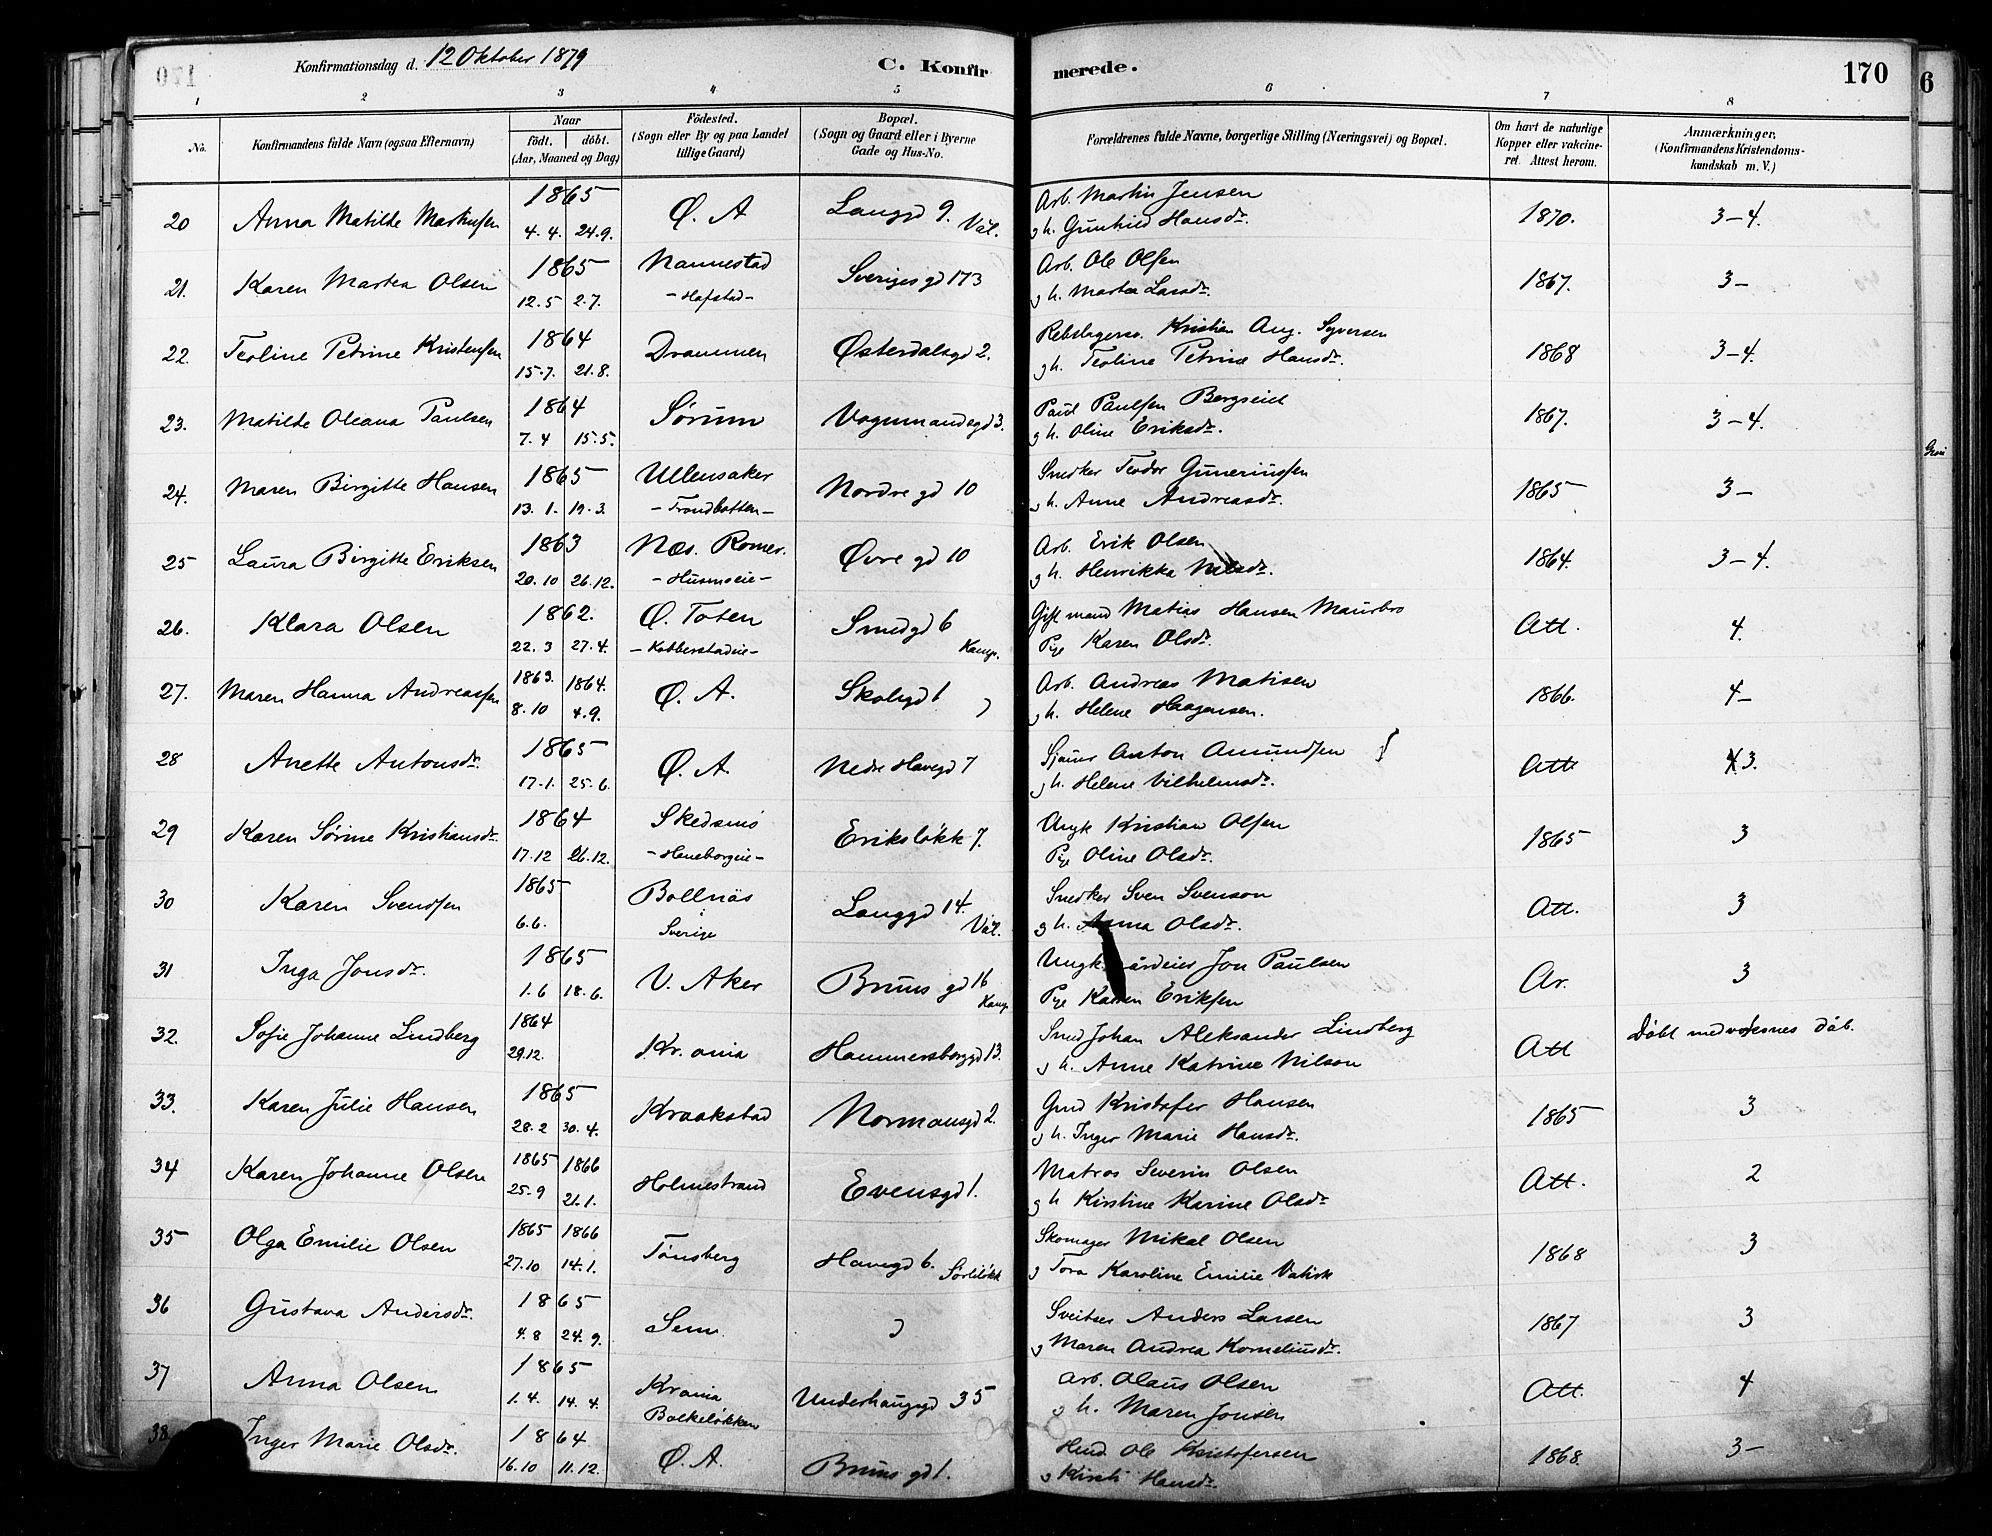 Konfirmationsdag d. 12 Oktober 1879 C. Konfirmerede. 170
1 2 3 4 5 6 7 8
No. Konfirmandens fulde Navn (ogsaa Efternavn) Naar födt. döbt. (Aar, Maaned og Dag) Födested. (Sogn eller By og paa Landet tillige Gaard) Bopæl. (Sogn og Gaard eller i Byerne Gade og Hus-No. Forældrenes fulde Navne, borgerlige Stilling (Næringsvei) og Bopæl. Om havt de naturlige Kopper eller vakcineret. Attest herom. Anmærkninger. (Konfirmandens Kristendomskundskab m. V.)
20 Anna Matilde Martinsen 1865 4.4. 24.9. Ø. A Langgd 9. Vål. Arb. Martin Jensen g h. Gunhild Hansdr. 1870. 3-4.
21. Karen Martea Olsen 1865 12.5 2.7. Nannestad -Hofstad- Sverigesgd 173 Arb. Ole Olsen g h. Martea Larsdr. 1867. 3-
22. Teoline Petrine Kristensen 1864 15.7. 21.8. Drammen Østerdalsgd 2. Rebslagersv. Kristian Aug. Syversen g h. Teoline Petrine Hansdr. 1868 3-4.
23. Matilde Oleana Paulsen 1864 7.4 15.5. Sørum Vognmandsgd 3. Paul Paulsen Bergseid g h. Oline Eriksdr. 1867. 3-4.
24. Maren Birgitte Hansen 1865 13.1. 19.3. Ullensaker -Trondbotten- Nordre gd 10 Snedker Teodor Gunneriussen g h. Anne Andreasdr. 1865 3-
25 Laura Birgitte Eriksen 1863 20.10 26.12. Næs. Romer. -Husmoeie- Øvre gd 10 Arb. Erik Olsen g h. Henrikka Nilsdr. 1864. 3-4.
26. Klara Olsen 1862. 22.3 27.4. Ø. Toten -Kobberstadeie- Smedgd 6 Kamp. Gift mand Matias Hansen Maurbro Pige Karen Olsdr. Att. 4.
27. Maren Hanna Andreassen 1863. 1864. 8.10 4.9. Ø. A. Skolegd 1 Arb. Andreas Matisen g h. Helene Haagensen. 1866. 4-
28 Anette Antonsdr. 1865 17.1. 25.6. Ø. A. Nedre Havegd 7 Sjauer Anton Amundsen g h. Helene Vilhelmsdr. Att 3.
29 Karen Sørine Kristiansdr. 1864 17.12 26.12. Skedsmo -Heneborgeie- Eriksløkk 7. Ungk Kristian Olsen Pige Oline Olsdr. 1865 3
30 Karen Svendsen 1865 6.6. Bollnäs Sverige Langgd 14. Vål. Snedker Sven Svenson g h. Anna Olsdr. Att. 3
31 Inga Jonsdr. 1865 1.6 18.6. V. Aker Bruns gd 16 Kamp. Ungk. Jon Paulsen Pige Karen Eriksen Ar. 3
32. Sofie Johanne Lindberg 1864 29.12. Kr.ania Hammersborggd 13. Smed Johan Aleksander Lindberg g h. Anne Katrine Nilson Att Døbt med voksnes dåb.
33. Karen Julie Hansen 1865 28.2 30.4. Kraakstad Normansgd 2. Gmd Kristofer Hansen g h. Inger Marie Hansdr. 1865 3
34 Karen Johanne Olsen 1865 1866 25.9 21.1. Holmestrand Evensgd 1. Matros Severin Olsen g h Kirstine Karine Olsdr Att. 2
35 Olga Emilie Olsen 1865 1866 27.10 14.1. Tønsberg Havegd 6. Sørliløkk Skomager Mikal Olsen g Tora Karoline Emilie 1868 3
36 Gustava Andersdr. 1865 4.8 24.9. Sem Sveitser Anders Larsen g Maren Andrea Korneliusdr. 1867 3
37 Anna Olsen 1865 1.4. 14.4. Krania Bolkeløkken Underhaugsgd 35 Arb. Olaus Olsen g h. Maren Jonsen Att. 4
38 Inger Marie Olsdr. 1864 16.10 11.12. Ø. A. Bruns gd 1. Hmd. Ole Kristofersen g Kirsti Hansdr. 1868. 3-
6